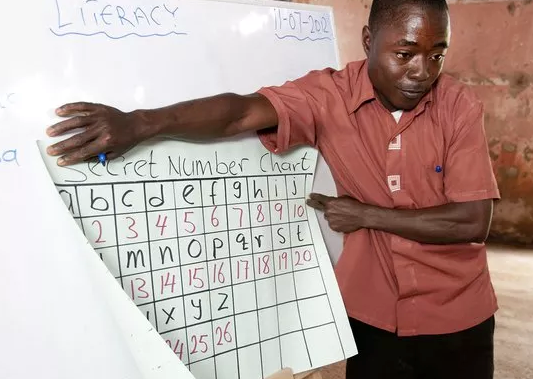 LITERACY
11-07-202
Secret Number Chart
a b c d e f g h i j
2 3 4 5 6 7 8 9 10
m n o p q r s t
13 14 15 16 17 18 19 20
x y z
24 25 26